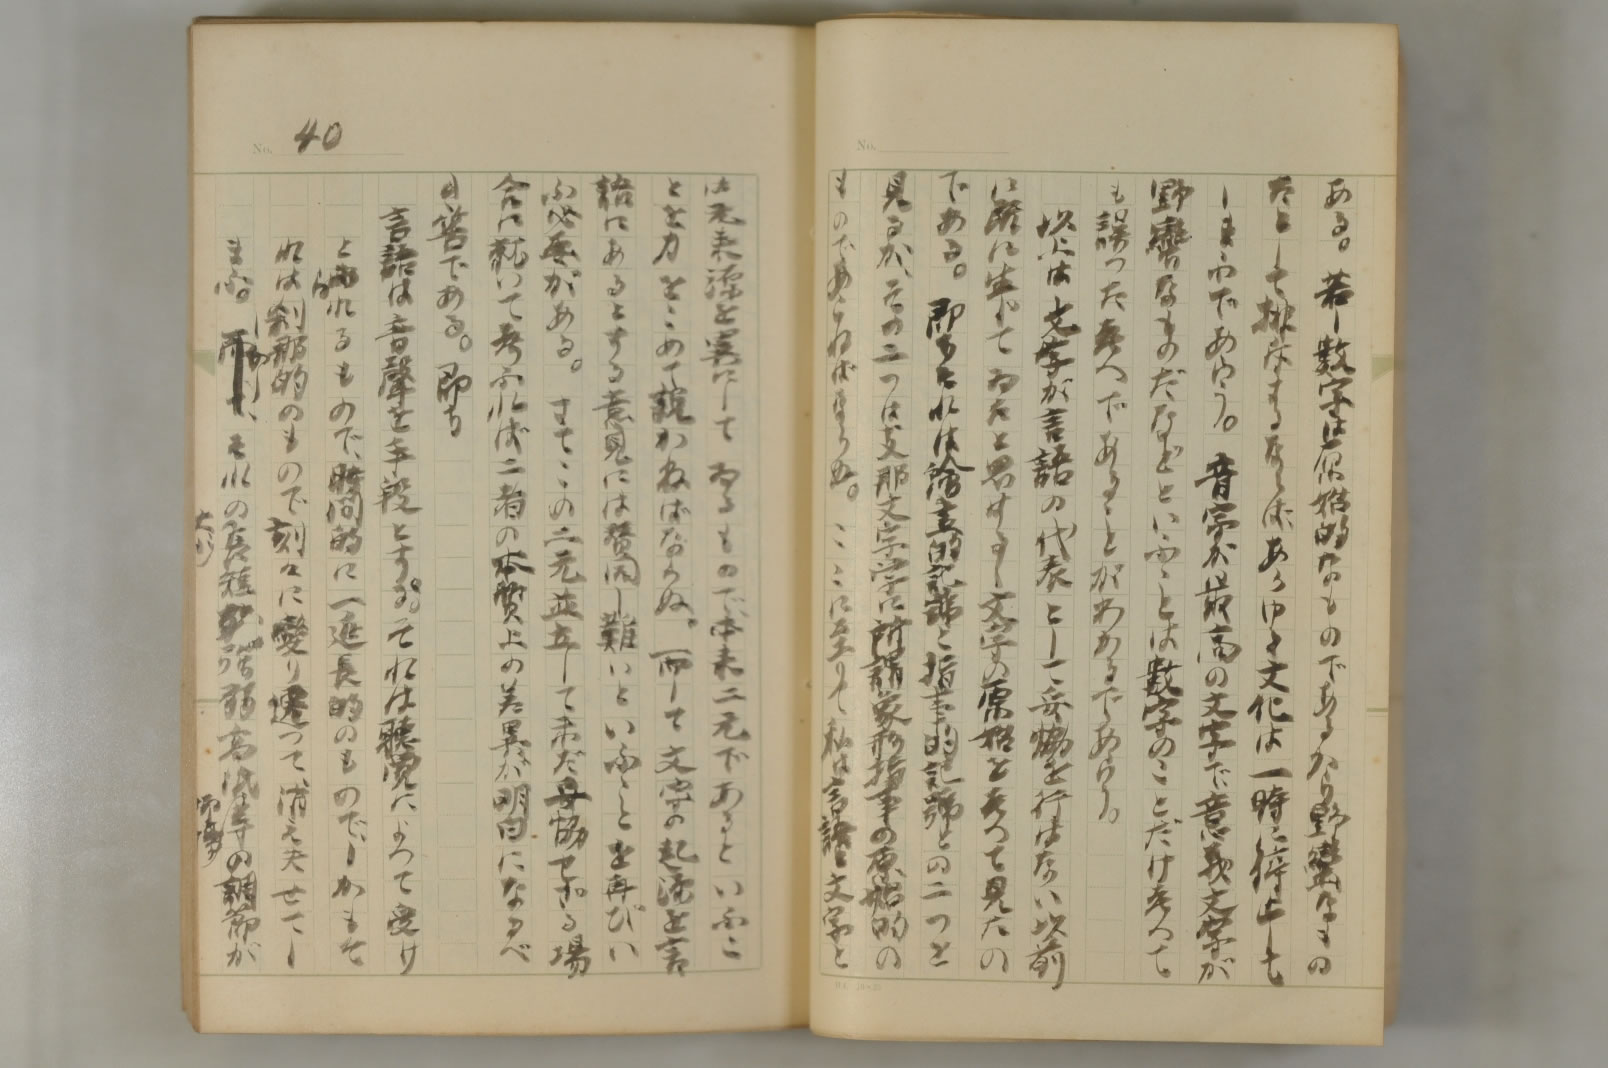 No.
ある。若し数字は原始的なものであるから野蠻なもの
だとして排斥するならばあらゆる文化は一時に停止して
しまふであらう。音字が最高の文字で意義文字が
野蠻なものだなどといふことは数字のことだけ考へて
も誤つた考へであることがわかるであらう。
以上は文字が言語の代表として妥協を行はない以前
に既に生じてゐたと思はするし文字の原始を考へて見たの
である。即ちそれは繪畫的記號と指事的記號との二つと
見るが、その二つは支那文字学に所謂象形指事の原始的の
ものであらねばならぬ。ここに至りて私は言語と文字と
No. 40
は元来源を異にしてゐるもので、本来二元であるといふこ
とを力をこめて説かねばならぬ。而して文字の起源を言
語にあるとする意見には賛同し難いといふことを再びい
ふ必要がある。さてこの二元並立して未だ妥協せざる場
合に就いて考ふれば二者の本質上の差異が明白になるべ
き筈である。即ち
言語は音聲を手段とする。それは聽覚によつて受け
とられるもので、時間的に一延長的のもので、しかもそ
れは刹那的のもので刻々に變り遷つて、消え失せてし
まふ。而して、それの長短強弱高低等の調節が